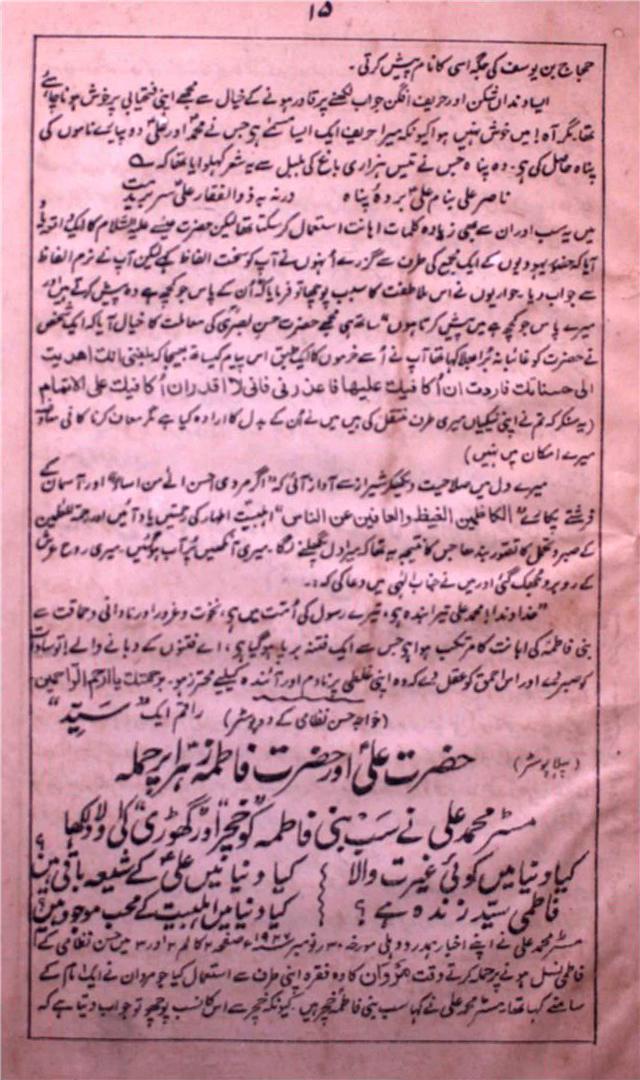 ۱۵
حجاج بن یوسف کی جگہ اسی کا نام پیش کرتی۔
ایسا دنداں شکن اور حریف افگن جواب لکھنے پر قادر ہونے کے خیال سے مجھے اپنی فتحیابی پر خوش ہونا چاہئے
تھا، مگر آہ! میں خوش نہیں ہوا کیونکہ میرا حریف ایک ایسا ہے جس نے محمدؐ اور علیؑ دو پیارے ناموں کی
پناہ حاصل کی ہے۔ وہ پناہ جس نے تیس ہزاری باغ کی بلبل سے یہ شعر کہلوایا تھا کہ
ناصر علی بنام علیؑ بردہ پناہ ورنہ بہ ذوالفقار علیؑ سر بریدمت
میں یہ سب اور ان سے بھی زیادہ کلمات اہانت استعمال کرسکتا تھا لیکن حضرت عیسےٰ علیہ السلام کا ایک واقعہ یاد
آیا کہ حضور یہودیوں کے ایک مجمع کی طرف سے گزرے اُنہوں نے آپ کو سخت الفاظ کہے لیکن آپ نے نرم الفاظ
سے جواب دیا۔ حواریوں نے اس ملاطفت کا سبب پوچھا تو فرمایا کہ "اُن کے پاس جو کچھ ہے وہ پیش کرتے ہیں اور
میرے پاس جو کچھ ہے میں پیش کرتا ہوں" ساتھ ہی مجھے حضرت حسن بصریؒ کی معاملت کا خیال آیا کہ ایک شخص
نے حضرت کو غائبانہ بُرا بھلا کہا تھا آپ نے اُسے خرموں کا ایک طبق اس پیام کے ساتھ بھیجا کہ بلغنی انک اھدیت
الی حسناتک فاردت ان اُکافیک علیھا فاعذرنی فانی لا اقدر ان اُکافیک علی الاتمام
(یہ سنکر کہ تم نے اپنی نیکیاں میری طرف منتقل کی ہیں میں نے اُن کے بدل کا ارادہ کیا ہے مگر معاف کرنا کافی معاوضہ
میرے امکان میں نہیں)
میرے دل میں صلاحیت دیکھکر شیراز سے آواز آئی کہ "اگر مردی احسن الےٰ من اساء" اور آسمان کے
فرشتے پکارے "الکاظمین الغیظ والعافین عن الناس" اہلبیت اطہار کی یاد آئیں اور رحمۃ للعٰلمین
کے صبر و تحمل کا تصور بندھا جس کا نتیجہ یہ تھا کہ میرا دل پگھلنے لگا، میری آنکھیں پُر آب ہوگئیں، میری روح عرش
کے روبرو جھک گئی اور میں نے جناب الٰہی میں دعا کی کہ:۔
"خداوندا! محمد علی تیرا بندہ ہے، تیرے رسول کی اُمت میں ہے، نخوت و غرور اور نادانی و حماقت سے
بنی فاطمہؑ کی اہانت کا مرتکب ہوا ہے جس سے ایک فتنہ برپا ہوگیا ہے، اے فتنوں کے دبانے والے! تو سادات
کو صبر دے اور اس احمق کو عقل دے کہ وہ اپنی غلطی پر نادم اور آئندہ کیلئے محترز ہو۔ برحمتک یا ارحم الراحمین۔
(خواجہ حسن نظامی کے دو پوسٹر) راقم ایک "سیّد"
(پہلا پوسٹر) حضرت علیؑ اور حضرت فاطمہ زہرا پر حملہ
مسٹر محمد علی نے سب بنی فاطمہ کو "خچر" اور "گھوڑی" کی اولاد لکھا
کیا دنیا میں کوئی غیرت والا کیا دنیا میں علیؑ کے شیعہ باقی ہیں؟
فاطمی سیّد زندہ ہے؟ کیا دنیا میں اہلبیت کے محب موجود ہیں؟
مسٹر محمد علی نے اپنے اخبار ہمدرد دہلی مورخہ ۳۰ نومبر ۱۹۲۶ء صفحہ ۲ کالم ۲ اور ۳ میں حسن نظامی کے
فاطمی نسل ہونے پر حملہ کرتے وقت مروان کا وہ فقرہ اپنی طرف سے استعمال کیا جو مروان نے ایک امام کے
سامنے کہا تھا۔ مسٹر محمد علی نے کہا سب بنی فاطمہؑ خچر ہیں۔ کیونکہ خچر سے اس کا نسب پوچھو تو جواب دیتا ہے کہ